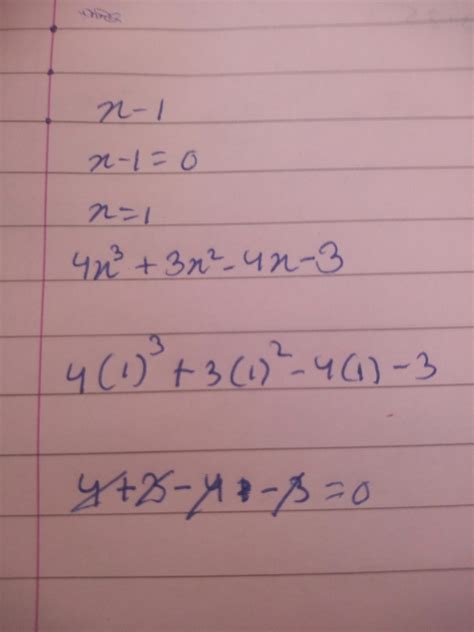 x-1
x-1=0
x=1
4x³+3x²-4x-3
4(1)³+3(1)²-4(1)-3
4+3-4-3=0